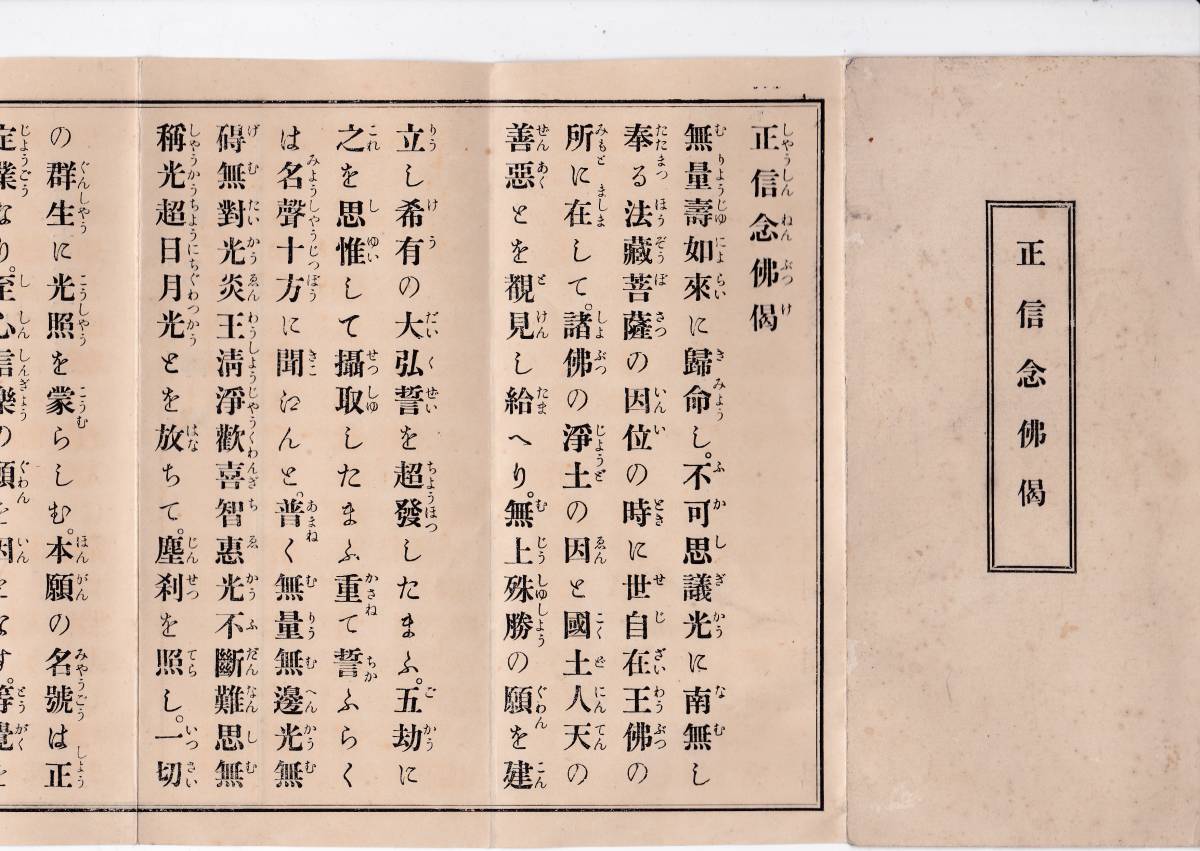 正信念佛偈
正信念佛偈
無量壽如來に歸命し。不可思議光に南無し
奉る法藏菩薩の因位の時に世自在王佛の
所に在して。諸佛の淨土の因と國土人天の
善惡とを覩見し給へり。無上殊勝の願を建
立し希有の大弘誓を超發したまふ。五劫に
之を思惟して攝取したまふ重て誓ふらく
は名聲十方に聞江んと。普く無量無邊光無
碍無對光炎王淸淨歡喜智惠光不斷難思無
稱光超日月光とを放ちて。塵刹を照し。一切
の群生に光照を蒙らしむ。本願の名號は正
定業なり。至心信樂の願を因となす。等覺を